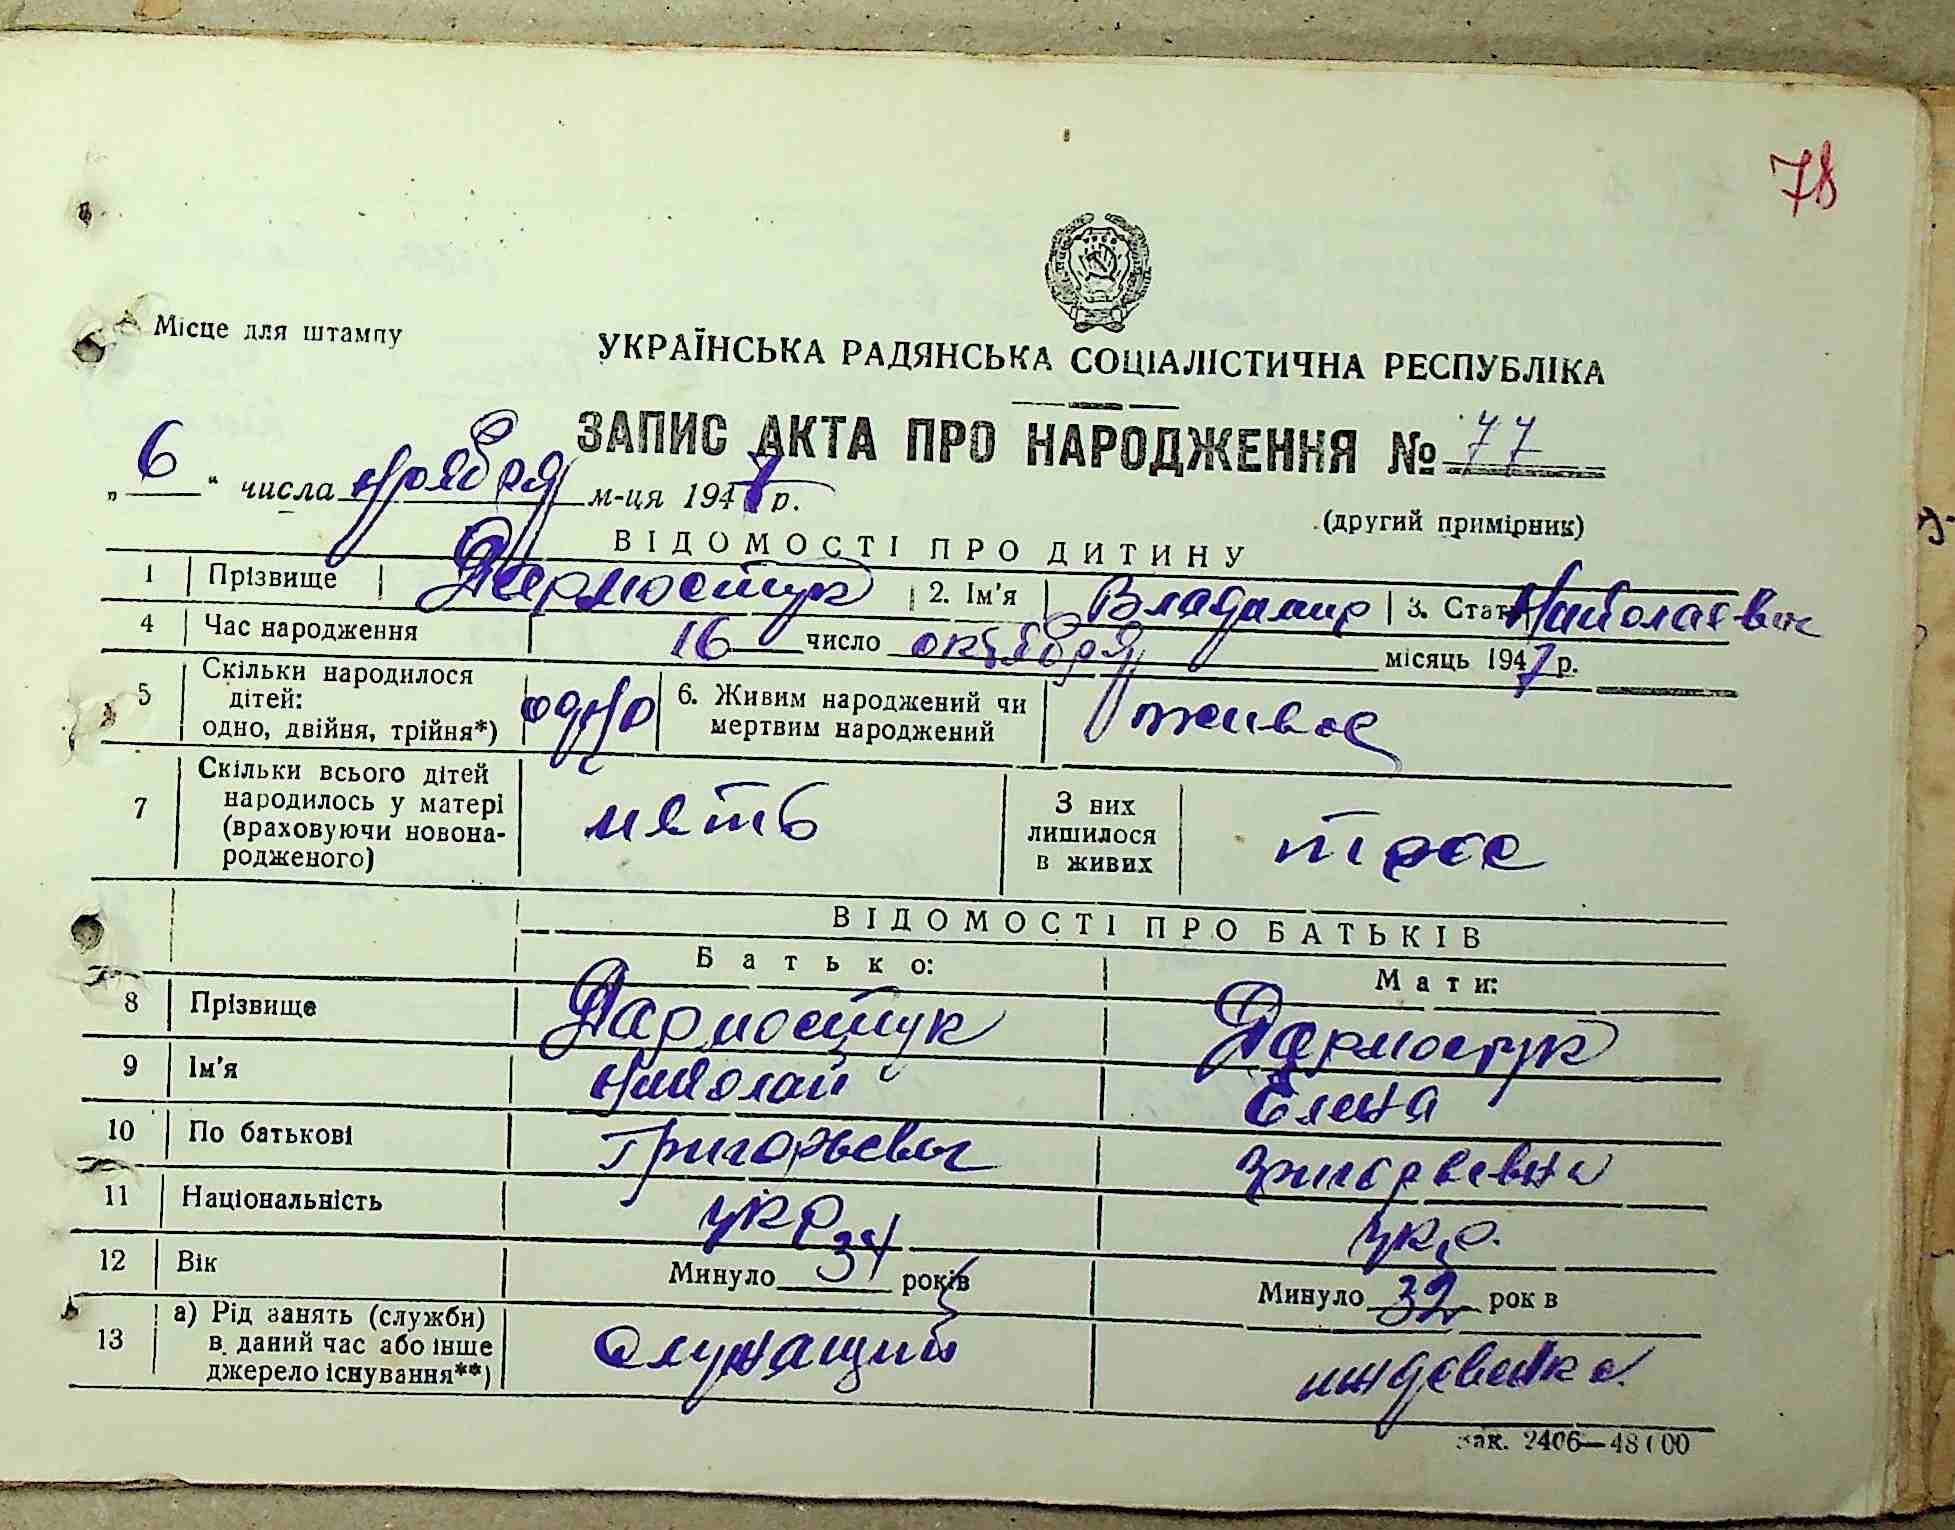 78
Місце для штампу
УКРАЇНСЬКА РАДЯНСЬКА СОЦІАЛІСТИЧНА РЕСПУБЛІКА
ЗАПИС АКТА ПРО НАРОДЖЕННЯ № 77
„6" числа ноября м-ця 1947 р.
(другий примірник)
ВІДОМОСТІ ПРО ДИТИНУ
1 Прізвище Дармостук 2. Ім'я Владимир 3. Стать Николаевич
4 Час народження 16 число октября місяць 1947 р.
5 Скільки народилося дітей: одно, двійня, трійня*) одно 6. Живим народжений чи мертвим народжений живое
7 Скільки всього дітей народилось у матері (враховуючи новонародженого) пять З них лишилося в живих трое
ВІДОМОСТІ ПРО БАТЬКІВ
Батько: Мати:
8 Прізвище Дармостук Дармостук
9 Ім'я Николай Елена
10 По батькові Григорьевич Григорьевна
11 Національність укр укр.
12 Вік Минуло 34 років Минуло 32 рок в
13 а) Рід занять (служби) в даний час або інше джерело існування**) Служащий иждевенка
Зак. 2406—48000